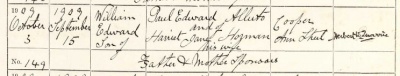 1909 1909 William Paul Edward Alberto Cooper
October September Edward and of
3 15 Son of Harriet Jane Hozman Ann Street
his wife
No. 149 Father & Mother Sponsors